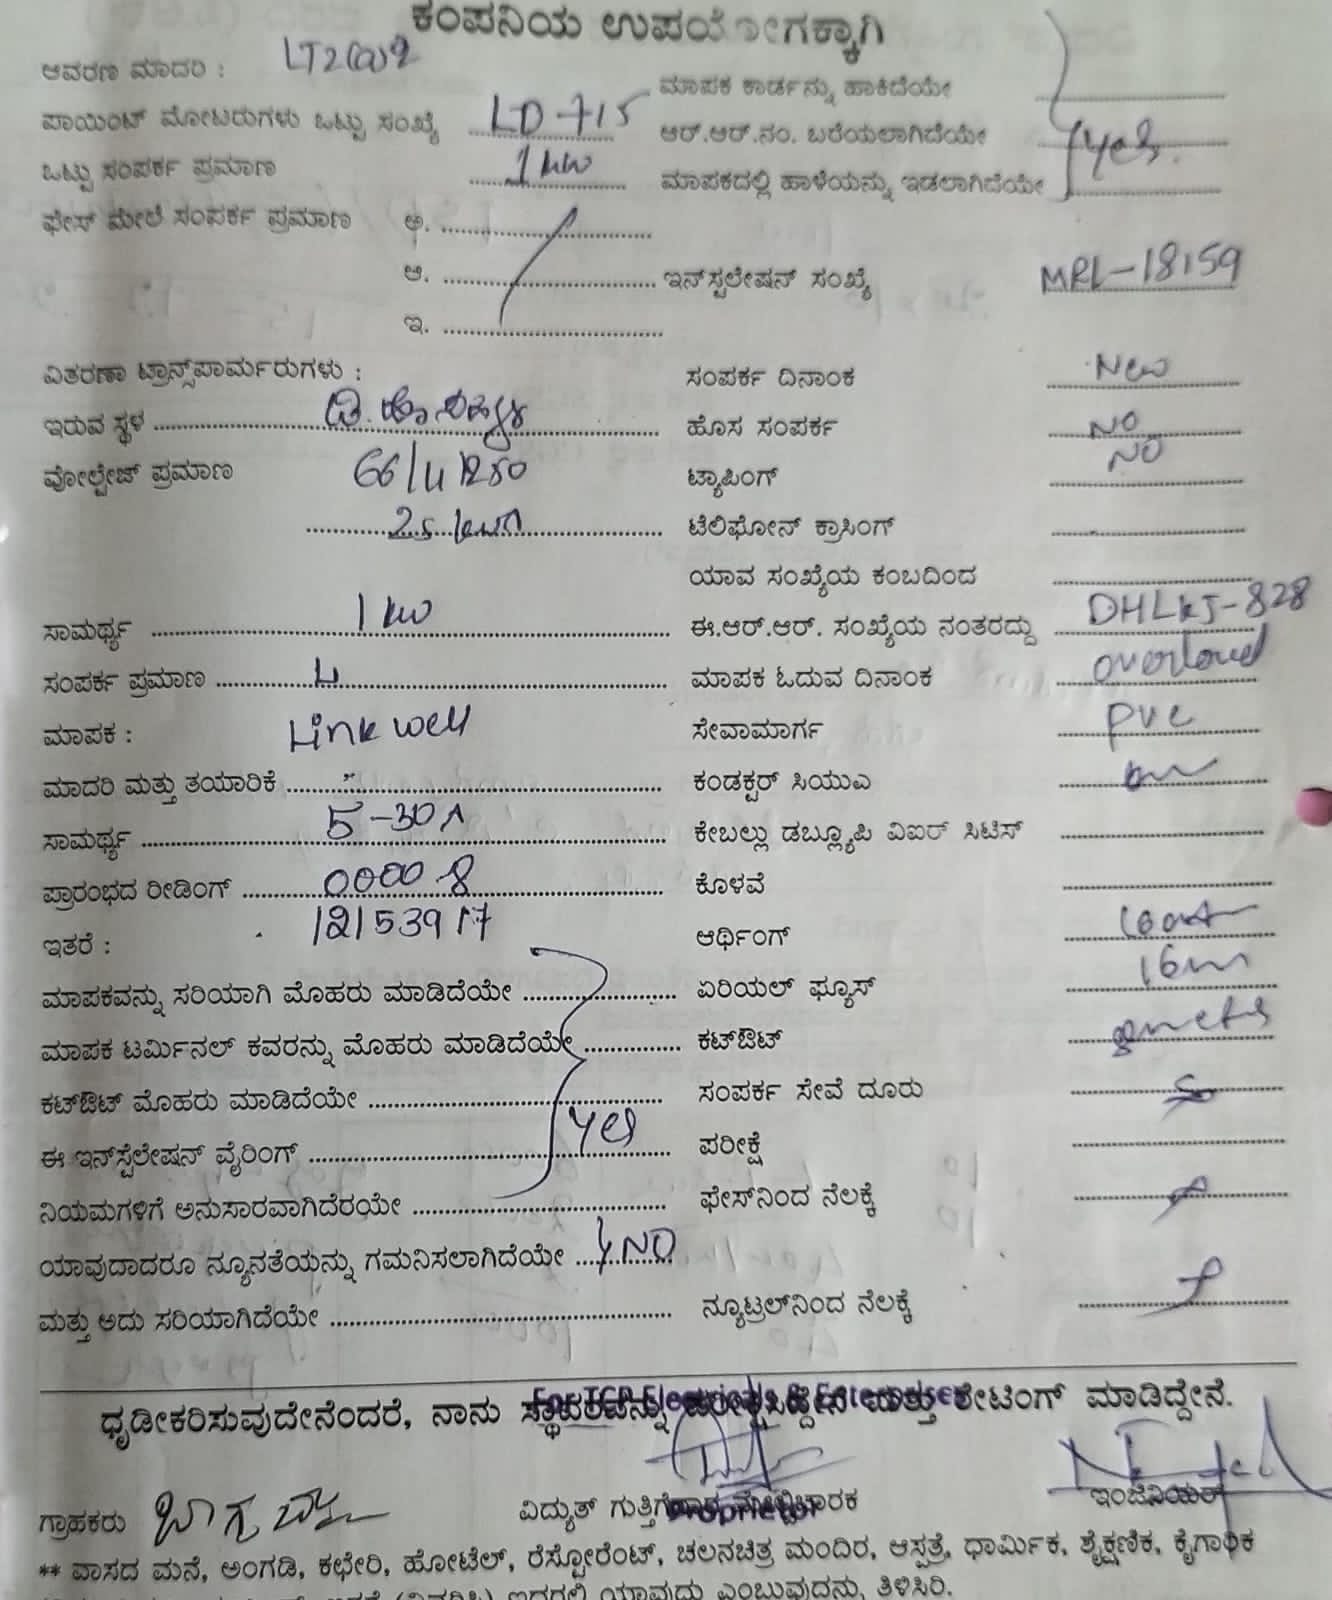 ಕಂಪನಿಯ ಉಪಯೋಗಕ್ಕಾಗಿ
ಆವರಣ ಮಾದರಿ :
ಮಾಪಕ ಕಾರ್ಡನ್ನು ಹಾಕಿದೆಯೇ
ಪಾಯಿಂಟ್ ಮೋಟರುಗಳು ಒಟ್ಟು ಸಂಖ್ಯೆ LD-715
ಆರ್.ಆರ್.ನಂ. ಬರೆಯಲಾಗಿದೆಯೇ Yes.
ಒಟ್ಟು ಸಂಪರ್ಕ ಪ್ರಮಾಣ 1 kw
ಮಾಪಕದಲ್ಲಿ ಹಾಳೆಯನ್ನು ಇಡಲಾಗಿದೆಯೇ
ಫೇಸ್ ಮೇಲೆ ಸಂಪರ್ಕ ಪ್ರಮಾಣ ಅ.
ಆ. ಇನ್‌ಸ್ಟಲೇಷನ್ ಸಂಖ್ಯೆ MRL-18159
ಇ.
ವಿತರಣಾ ಟ್ರಾನ್ಸ್‌ಪಾರ್ಮರುಗಳು : ಸಂಪರ್ಕ ದಿನಾಂಕ New
ಇರುವ ಸ್ಥಳ ಹೊಸ ಸಂಪರ್ಕ NO
ವೋಲ್ಟೇಜ್ ಪ್ರಮಾಣ 66/11/250 ಟ್ಯಾಪಿಂಗ್ NO
ಟೆಲಿಫೋನ್ ಕ್ರಾಸಿಂಗ್
ಯಾವ ಸಂಖ್ಯೆಯ ಕಂಬದಿಂದ
ಸಾಮರ್ಥ್ಯ 1 kw ಈ.ಆರ್.ಆರ್. ಸಂಖ್ಯೆಯ ನಂತರದ್ದು DHLKJ-828
ಸಂಪರ್ಕ ಪ್ರಮಾಣ ಮಾಪಕ ಓದುವ ದಿನಾಂಕ overload
ಮಾಪಕ : Link well ಸೇವಾಮಾರ್ಗ PVC
ಮಾದರಿ ಮತ್ತು ತಯಾರಿಕೆ ಕಂಡಕ್ಟರ್ ಸಿಯುಎ
ಸಾಮರ್ಥ್ಯ 5-30A ಕೇಬಲ್ಲು ಡಬ್ಲ್ಯೂಪಿ ವಿಐರ್ ಸಿಟಿಸ್
ಪ್ರಾರಂಭದ ರೀಡಿಂಗ್ 0000.8 ಕೊಳವೆ
ಇತರೆ : 12153917 ಆರ್ಥಿಂಗ್
ಮಾಪಕವನ್ನು ಸರಿಯಾಗಿ ಮೊಹರು ಮಾಡಿದೆಯೇ ಏರಿಯಲ್ ಫ್ಯೂಸ್
ಮಾಪಕ ಟರ್ಮಿನಲ್ ಕವರನ್ನು ಮೊಹರು ಮಾಡಿದೆಯೇ ಕಟ್‌ಔಟ್
ಕಟ್‌ಔಟ್ ಮೊಹರು ಮಾಡಿದೆಯೇ ಸಂಪರ್ಕ ಸೇವೆ ದೂರು
ಈ ಇನ್‌ಸ್ಟೆಲೇಷನ್ ವೈರಿಂಗ್ Yes ಪರೀಕ್ಷೆ
ನಿಯಮಗಳಿಗೆ ಅನುಸಾರವಾಗಿದೆರಯೇ ಫೇಸ್‌ನಿಂದ ನೆಲಕ್ಕೆ
ಯಾವುದಾದರೂ ನ್ಯೂನತೆಯನ್ನು ಗಮನಿಸಲಾಗಿದೆಯೇ NO
ಮತ್ತು ಅದು ಸರಿಯಾಗಿದೆಯೇ ನ್ಯೂಟ್ರಲ್‌ನಿಂದ ನೆಲಕ್ಕೆ
ಧೃಡೀಕರಿಸುವುದೇನೆಂದರೆ, ನಾನು ಸ್ಥಾವರವನ್ನು ಪರೀಕ್ಷಿಸಿದ್ದೇನೆ ಮತ್ತು ರೇಟಿಂಗ್ ಮಾಡಿದ್ದೇನೆ.
ಗ್ರಾಹಕರು ವಿದ್ಯುತ್ ಗುತ್ತಿಗೆದಾರ ಇಂಜಿನಿಯರ್
** ವಾಸದ ಮನೆ, ಅಂಗಡಿ, ಕಛೇರಿ, ಹೋಟೆಲ್, ರೆಸ್ಟೋರೆಂಟ್, ಚಲನಚಿತ್ರ ಮಂದಿರ, ಆಸ್ಪತ್ರೆ, ಧಾರ್ಮಿಕ, ಶೈಕ್ಷಣಿಕ, ಕೈಗಾರಿಕ
ಇದರಲ್ಲಿ ಯಾವುದು ಎಂಬುವುದನ್ನು ತಿಳಿಸಿರಿ.